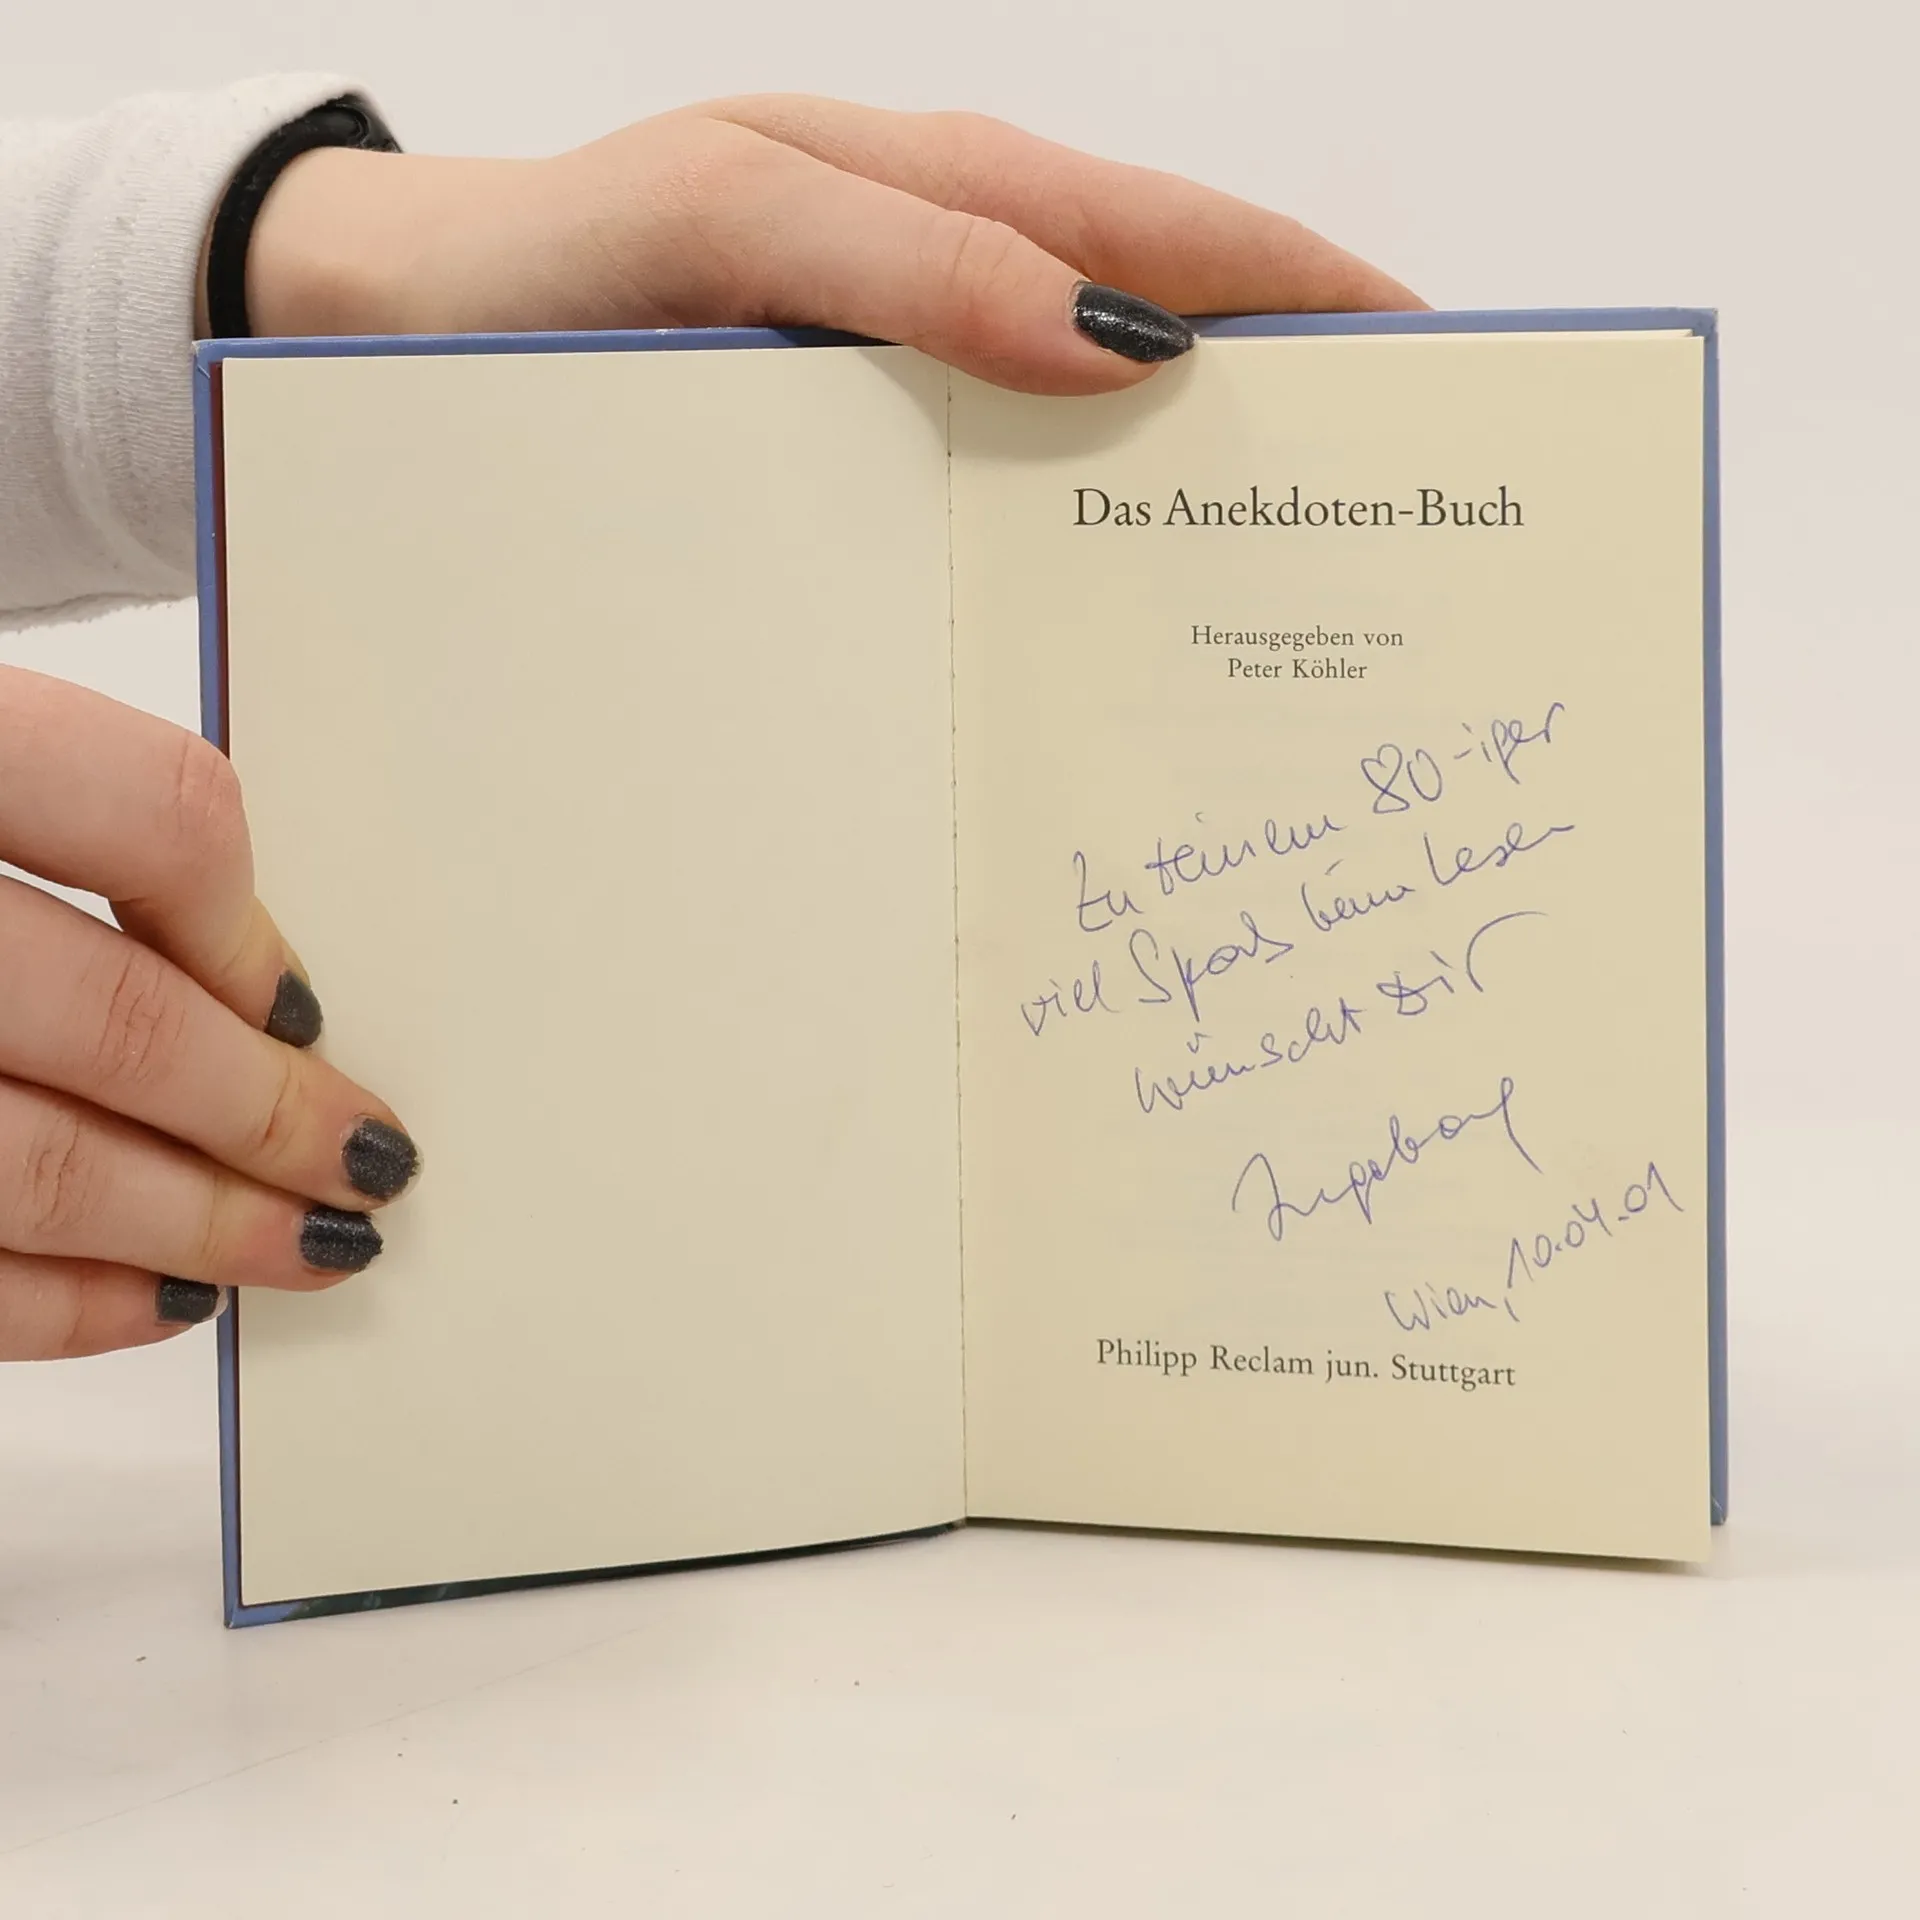 Das Anekdoten-Buch
Herausgegeben von
Peter Köhler
Zu Deinem 80-iger
viel Spaß beim Lesen
wünscht Dir
Ingeborg
Wien, 10.04.01
Philipp Reclam jun. Stuttgart